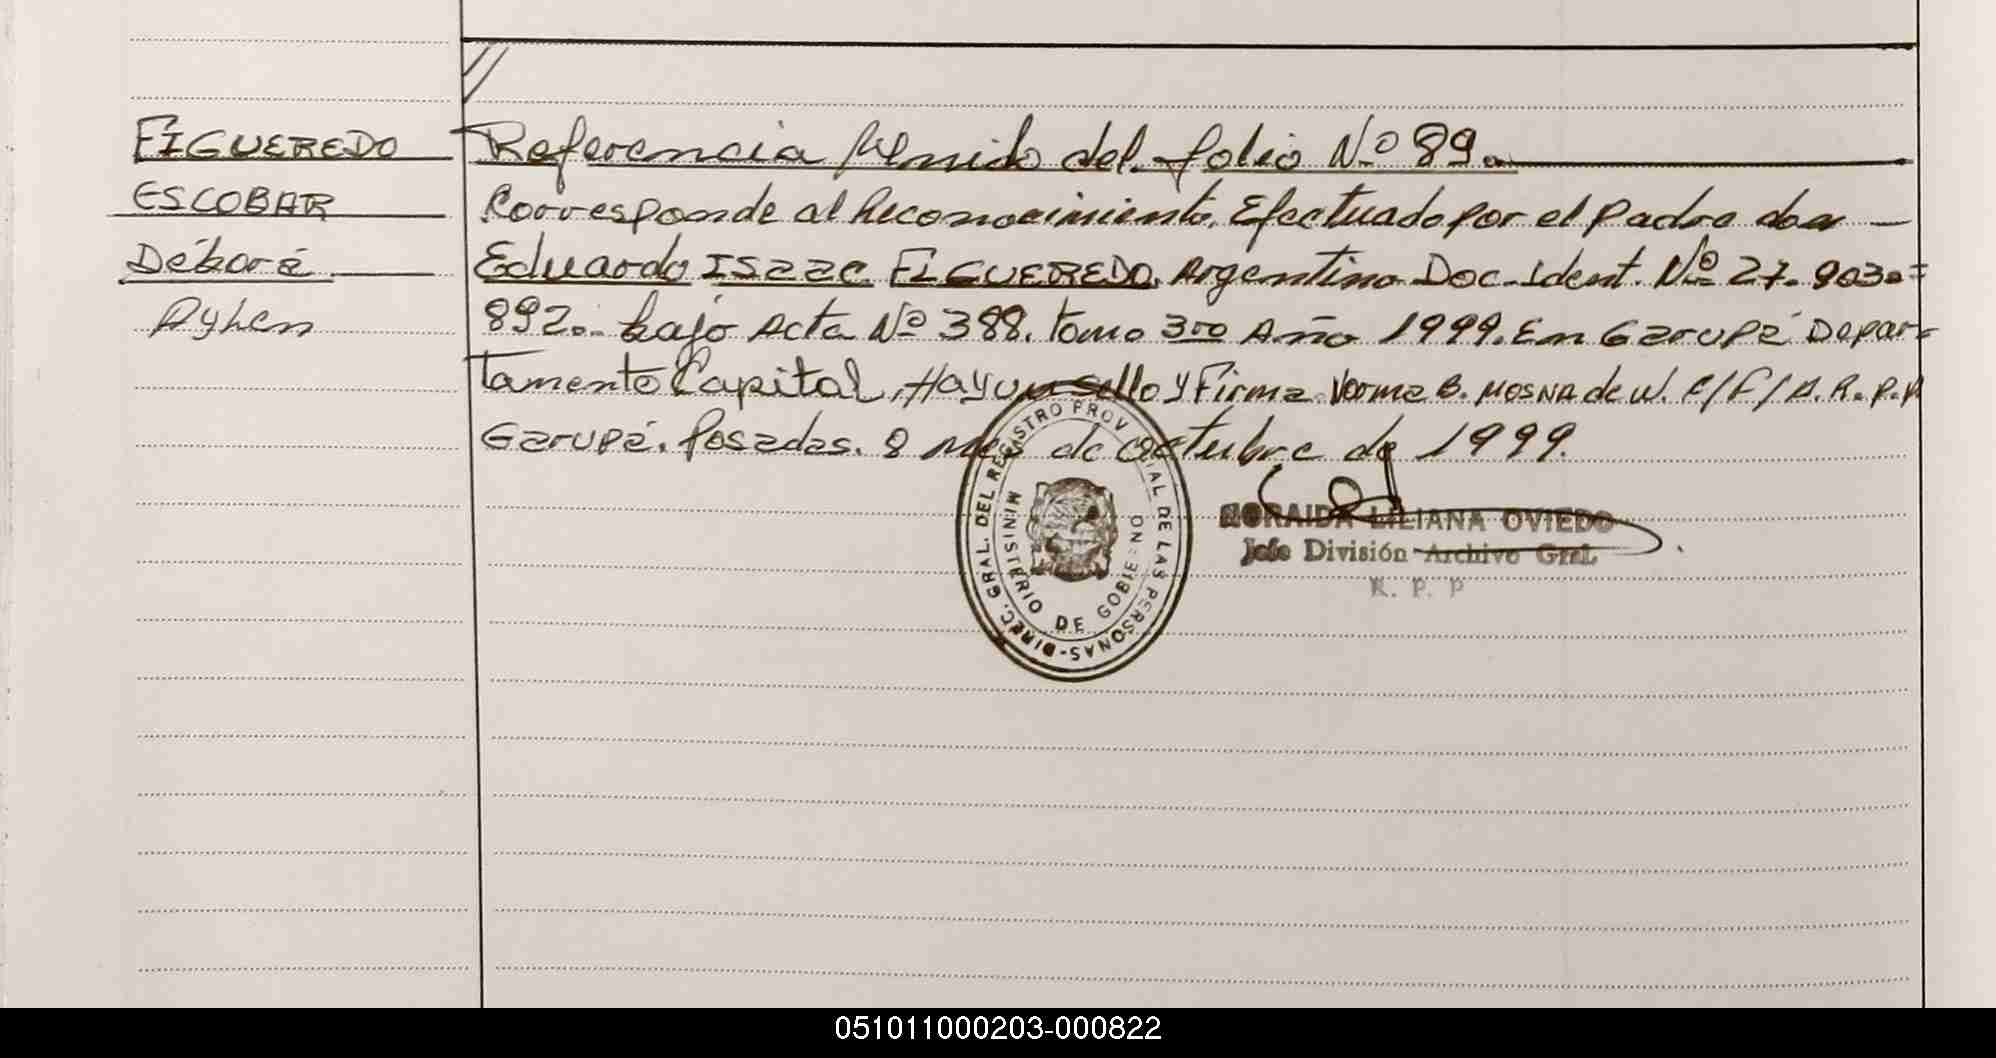 FIGUEREDO
ESCOBAR
Débora
Aylen
Referencia del folio Nº 89.
Corresponde al Reconocimiento. Efectuado por el padre don
Eduardo ISaac FIGUEREDO. Argentino Doc. Ident. Nº 27.903.=
892.- bajo Acta Nº 388. tomo 3ro Año 1999. En Garupá Depar-
tamento Capital, Hay un sello y Firma Norma B. MOSNA de W.
Garupá. Posadas. 8 mes de octubre de 1999.
DIREC. GRAL. DEL REGISTRO PROVINCIAL DE LAS PERSONAS-
MINISTERIO DE GOBIERNO
NORAIDA LILIANA OVIEDO
Jefe División Archivo Gral.
R. P. P
051011000203-000822